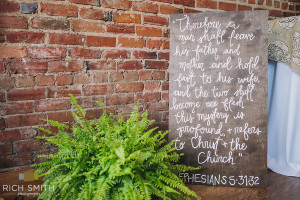 "Therefore a
man shall leave
his father and
mother and hold
fast to his wife,
and the two shall
become one flesh
this mystery is
profound & refers
to Christ & the
Church"
EPHESIANS 5:31-32
RICH SMITH
Photography